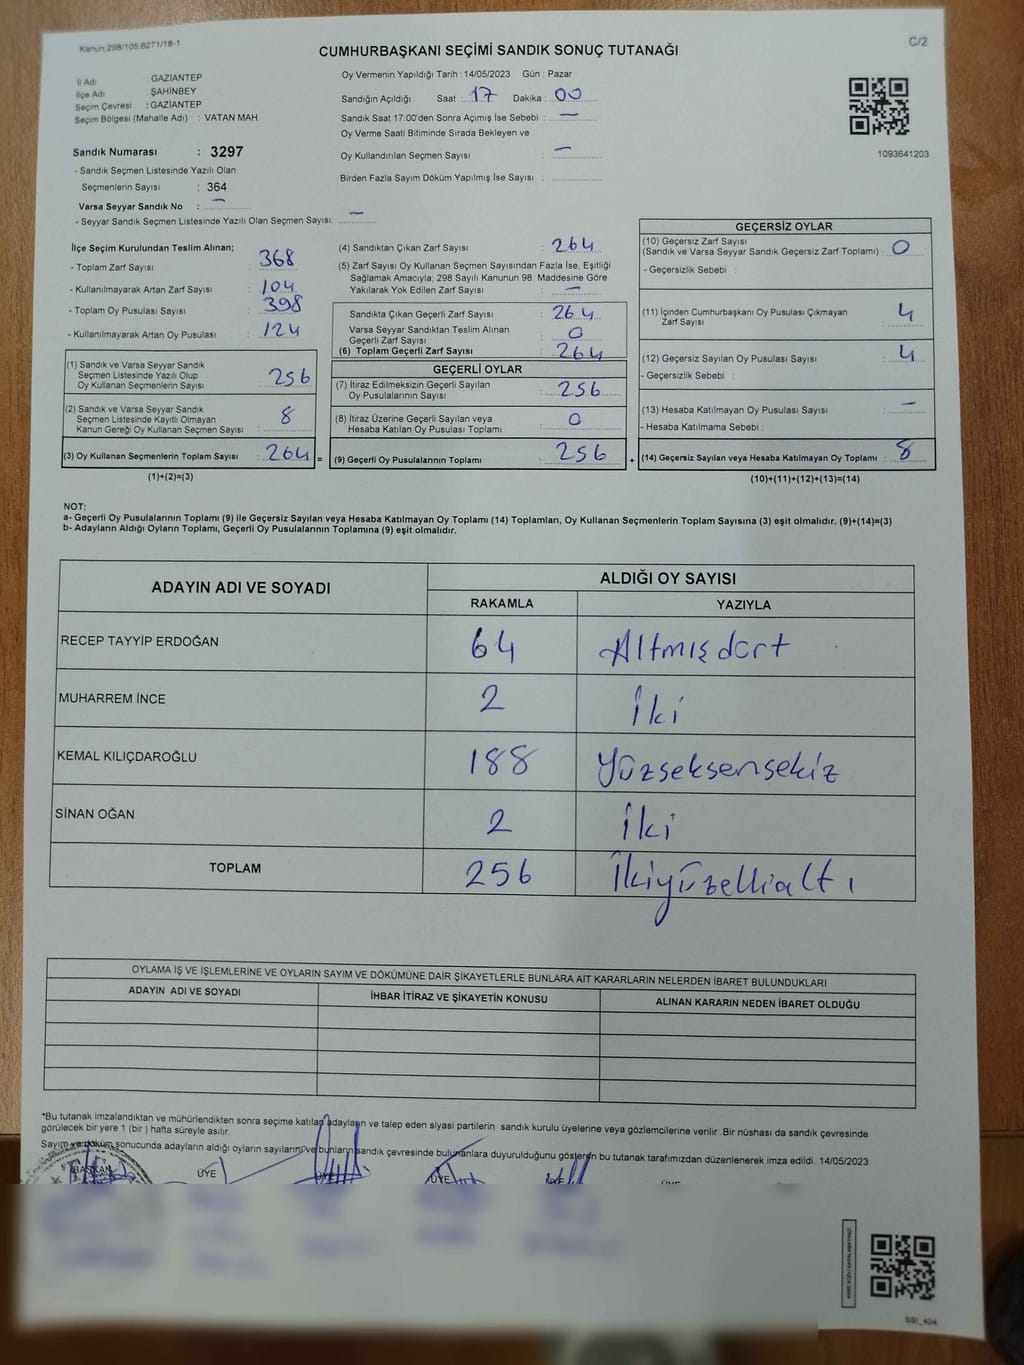 Kanun,298/105,6271/18-1
C/2
CUMHURBAŞKANI SEÇİMİ SANDIK SONUÇ TUTANAĞI
İl Adı : GAZİANTEP
İlçe Adı : ŞAHİNBEY
Seçim Çevresi : GAZİANTEP
Seçim Bölgesi (Mahalle Adı) : VATAN MAH.
Sandık Numarası : 3297
- Sandık Seçmen Listesinde Yazılı Olan
Seçmenlerin Sayısı : 364
Varsa Seyyar Sandık No : —
- Seyyar Sandık Seçmen Listesinde Yazılı Olan Seçmen Sayısı: —
Oy Vermenin Yapıldığı Tarih : 14/05/2023 Gün : Pazar
Sandığın Açıldığı Saat : 17 Dakika : 00
Sandık Saat 17:00'den Sonra Açımış İse Sebebi : —
Oy Verme Saati Bitiminde Sırada Bekleyen ve
Oy Kullandırılan Seçmen Sayısı : —
Birden Fazla Sayım Döküm Yapılmış İse Sayısı :
1093641203
İlçe Seçim Kurulundan Teslim Alınan;
- Toplam Zarf Sayısı : 368
- Kullanılmayarak Artan Zarf Sayısı : 104
- Toplam Oy Pusulası Sayısı : 398
- Kullanılmayarak Artan Oy Pusulası : 124
(1) Sandık ve Varsa Seyyar Sandık
Seçmen Listesinde Yazılı Olup
Oy Kullanan Seçmenlerin Sayısı : 256
(2) Sandık ve Varsa Seyyar Sandık
Seçmen Listesinde Kayıtlı Olmayan
Kanun Gereği Oy Kullanan Seçmen Sayısı : 8
(3) Oy Kullanan Seçmenlerin Toplam Sayısı : 264 =
(1)+(2)=(3)
(4) Sandıktan Çıkan Zarf Sayısı : 264
(5) Zarf Sayısı Oy Kullanan Seçmen Sayısından Fazla İse, Eşitliği
Sağlamak Amacıyla; 298 Sayılı Kanunun 98. Maddesine Göre
Yakılarak Yok Edilen Zarf Sayısı : —
Sandıkta Çıkan Geçerli Zarf Sayısı : 264
Varsa Seyyar Sandıktan Teslim Alınan
Geçerli Zarf Sayısı : 0
(6) Toplam Geçerli Zarf Sayısı : 264
GEÇERLİ OYLAR
(7) İtiraz Edilmeksizin Geçerli Sayılan
Oy Pusulalarının Sayısı : 256
(8) İtiraz Üzerine Geçerli Sayılan veya
Hesaba Katılan Oy Pusulası Toplamı : 0
(9) Geçerli Oy Pusulalarının Toplamı : 256 +
GEÇERSİZ OYLAR
(10) Geçersiz Zarf Sayısı
(Sandık ve Varsa Seyyar Sandık Geçersiz Zarf Toplamı) : 0
- Geçersizlik Sebebi :
(11) İçinden Cumhurbaşkanı Oy Pusulası Çıkmayan
Zarf Sayısı : 4
(12) Geçersiz Sayılan Oy Pusulası Sayısı : 4
- Geçersizlik Sebebi :
(13) Hesaba Katılmayan Oy Pusulası Sayısı : —
- Hesaba Katılmama Sebebi :
(14) Geçersiz Sayılan veya Hesaba Katılmayan Oy Toplamı : 8
(10)+(11)+(12)+(13)=(14)
NOT:
a- Geçerli Oy Pusulalarının Toplamı (9) ile Geçersiz Sayılan veya Hesaba Katılmayan Oy Toplamı (14) Toplamları, Oy Kullanan Seçmenlerin Toplam Sayısına (3) eşit olmalıdır. (9)+(14)=(3)
b- Adayların Aldığı Oyların Toplamı, Geçerli Oy Pusulalarının Toplamına (9) eşit olmalıdır.
ADAYIN ADI VE SOYADI
ALDIĞI OY SAYISI
RAKAMLA YAZIYLA
RECEP TAYYİP ERDOĞAN 64 Altmışdört
MUHARREM İNCE 2 İki
KEMAL KILIÇDAROĞLU 188 Yüzseksensekiz
SİNAN OĞAN 2 İki
TOPLAM 256 İkiyüzellialtı
OYLAMA İŞ VE İŞLEMLERİNE VE OYLARIN SAYIM VE DÖKÜMÜNE DAİR ŞİKAYETLERLE BUNLARA AİT KARARLARIN NELERDEN İBARET BULUNDUKLARI
ADAYIN ADI VE SOYADI İHBAR İTİRAZ VE ŞİKAYETİN KONUSU ALINAN KARARIN NEDEN İBARET OLDUĞU
*Bu tutanak imzalandıktan ve mühürlendikten sonra seçime katılan adayların ve talep eden siyasi partilerin sandık kurulu üyelerine veya gözlemcilerine verilir .Bir nüshası da sandık çevresinde
görülecek bir yere 1 (bir ) hafta süreyle asılır.
Sayım ve döküm sonucunda adayların aldığı oyların sayılarını ve bunların sandık çevresinde bulunanlara duyurulduğunu gösteren bu tutanak tarafımızdan düzenlenerek imza edildi. 14/05/2023
BAŞKAN ÜYE ÜYE